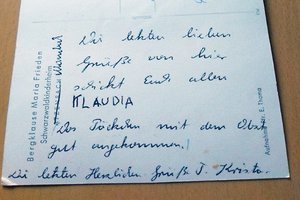 Die letzten lieben
Grüße von hier
schickt Euch allen
KLAUDIA
Das Päckchen mit dem Obst
gut angekommen!
Die letzten Herzlichen Grüße T. Krista.
Bergklause Maria Frieden
Schwarzwaldkinderheim
Aufnahme: E. Thoma